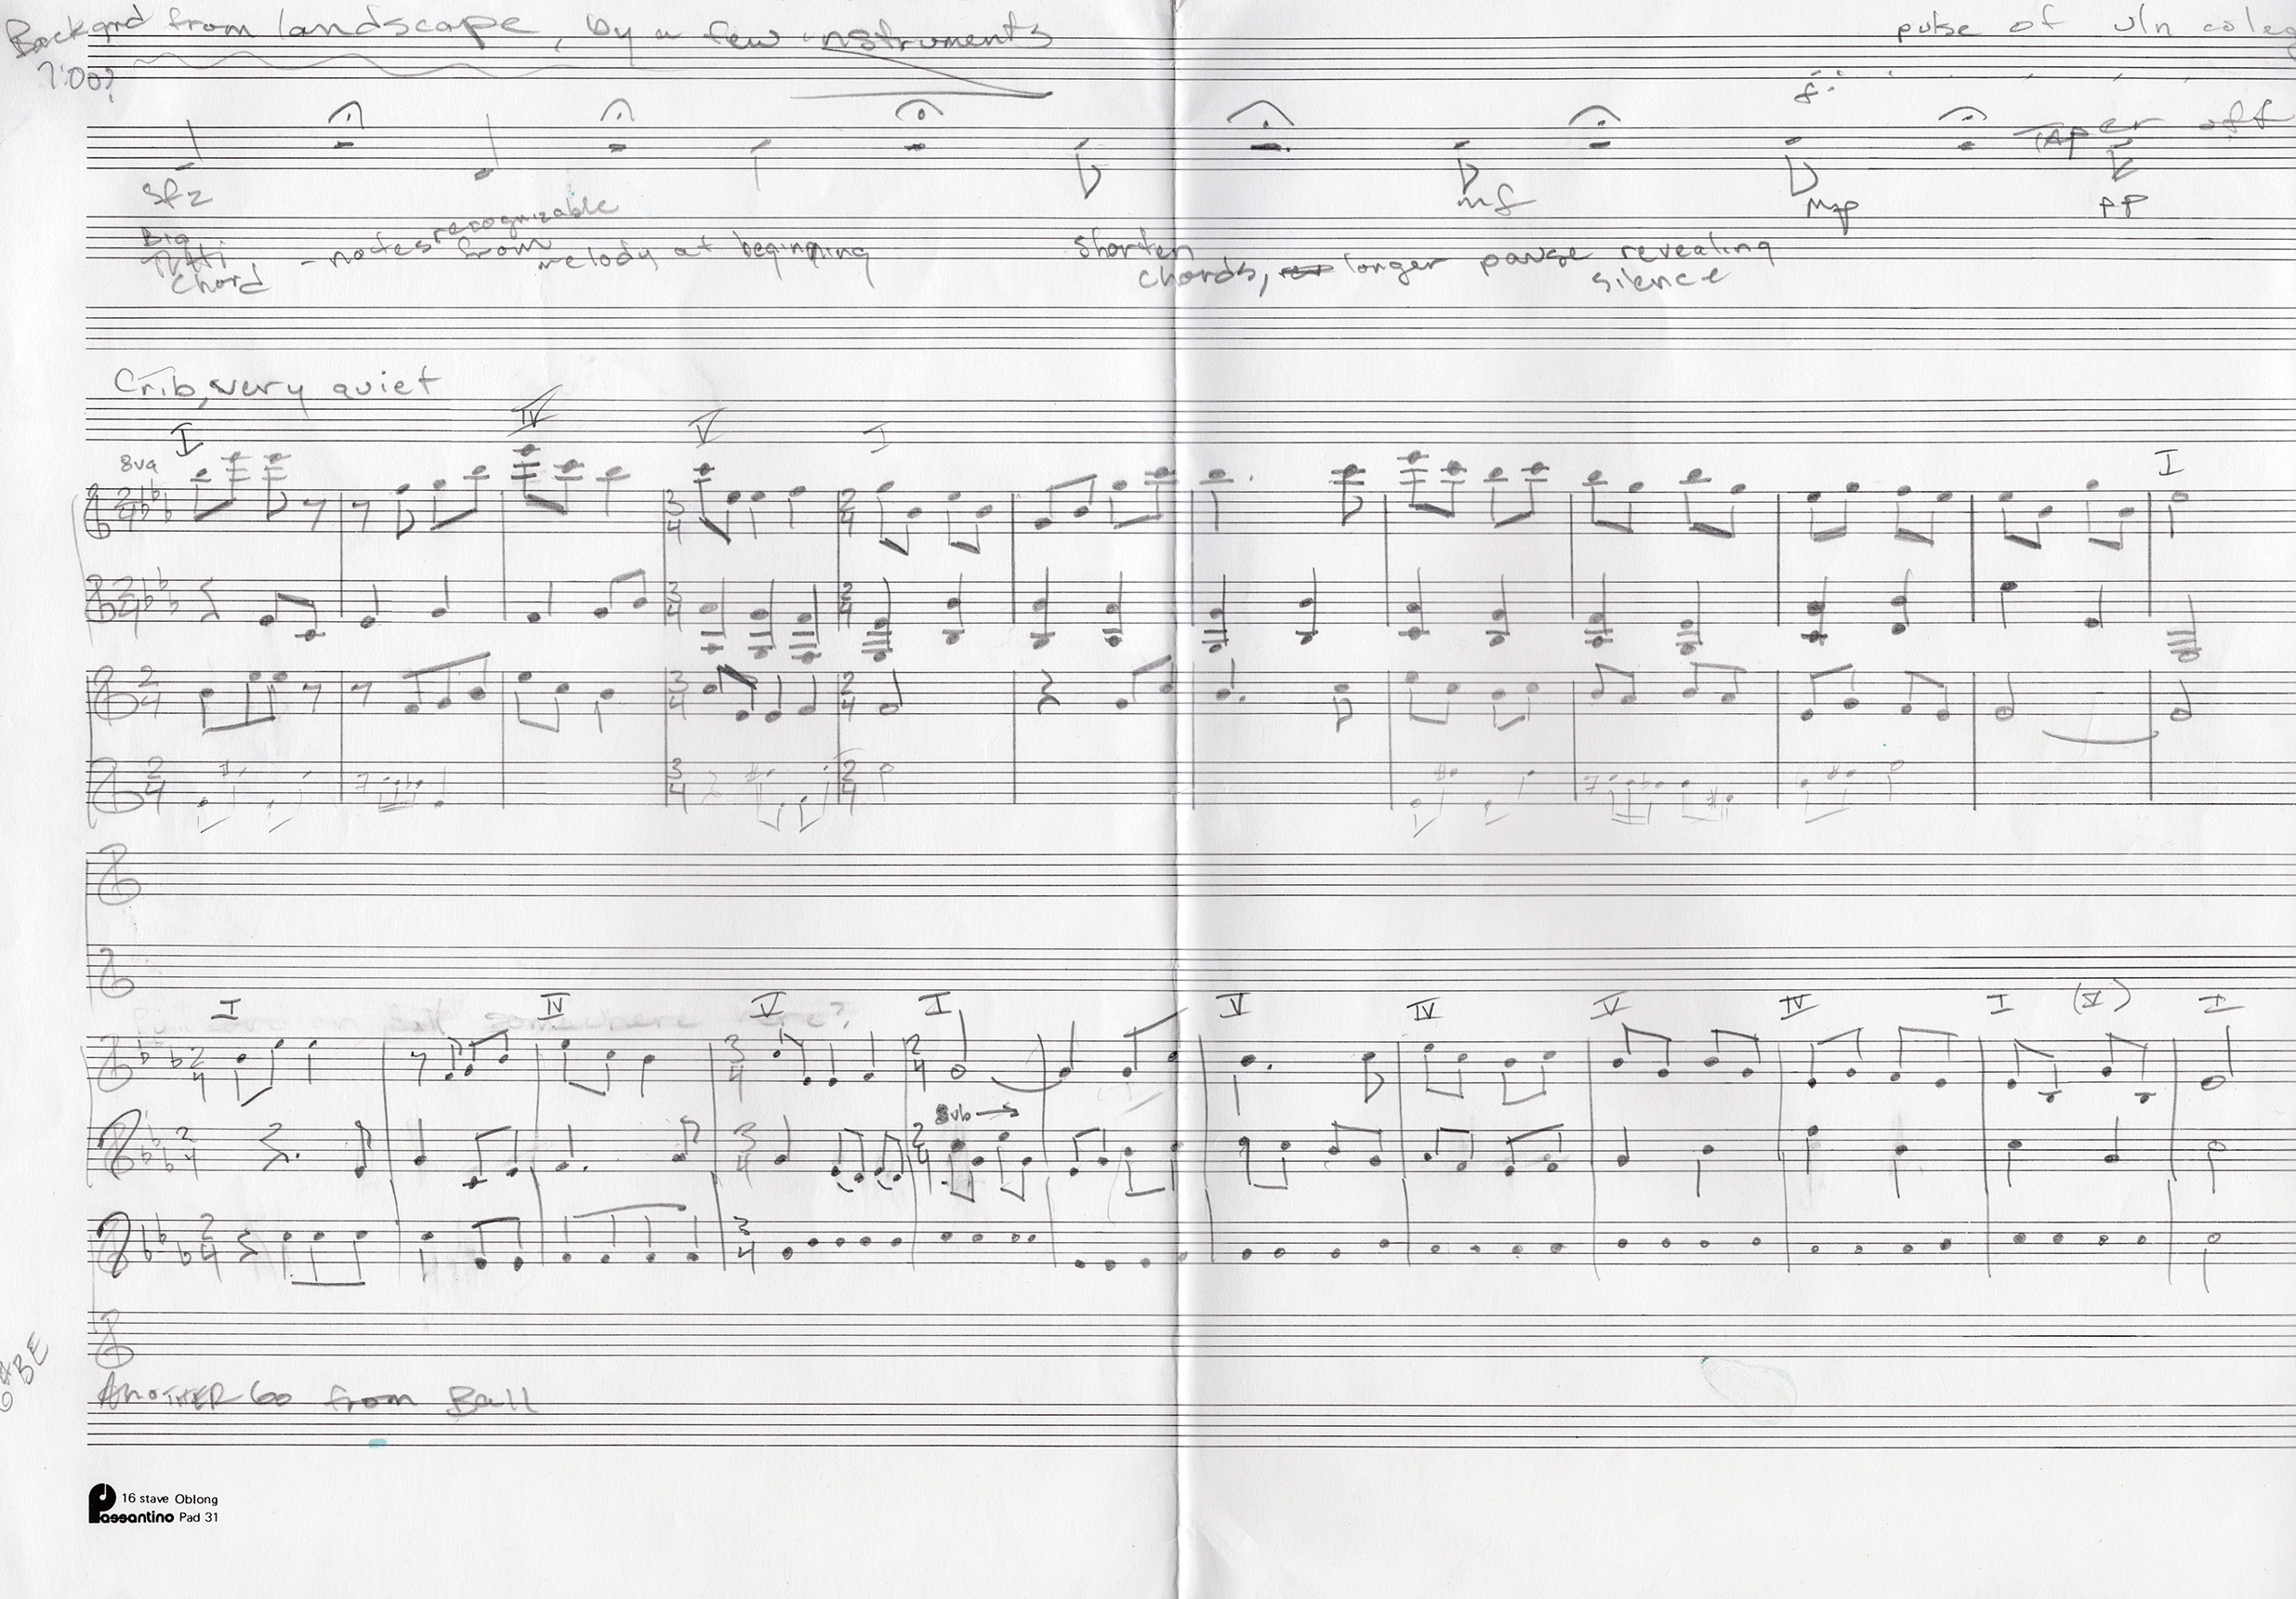 Backgrnd from landscape, by a few instruments
pulse of vln coleg
7:00?
f
Taper off
sfz
mf
mp
pp
Big Tutti Chord
- notes recognizable from melody at beginning
Shorten chords, longer pause revealing silence
Crib, very quiet
I IV V I I
8va
2/4 3/4 2/4
2/4 3/4 2/4
2/4 3/4 2/4
2/4 3/4 2/4
somewhere here?
I IV V I V IV V IV I (V) I
2/4 3/4 2/4
8vb
2/4 3/4 2/4
2/4 3/4
ANOTHER Go from Ball
16 stave Oblong
Passantino Pad 31